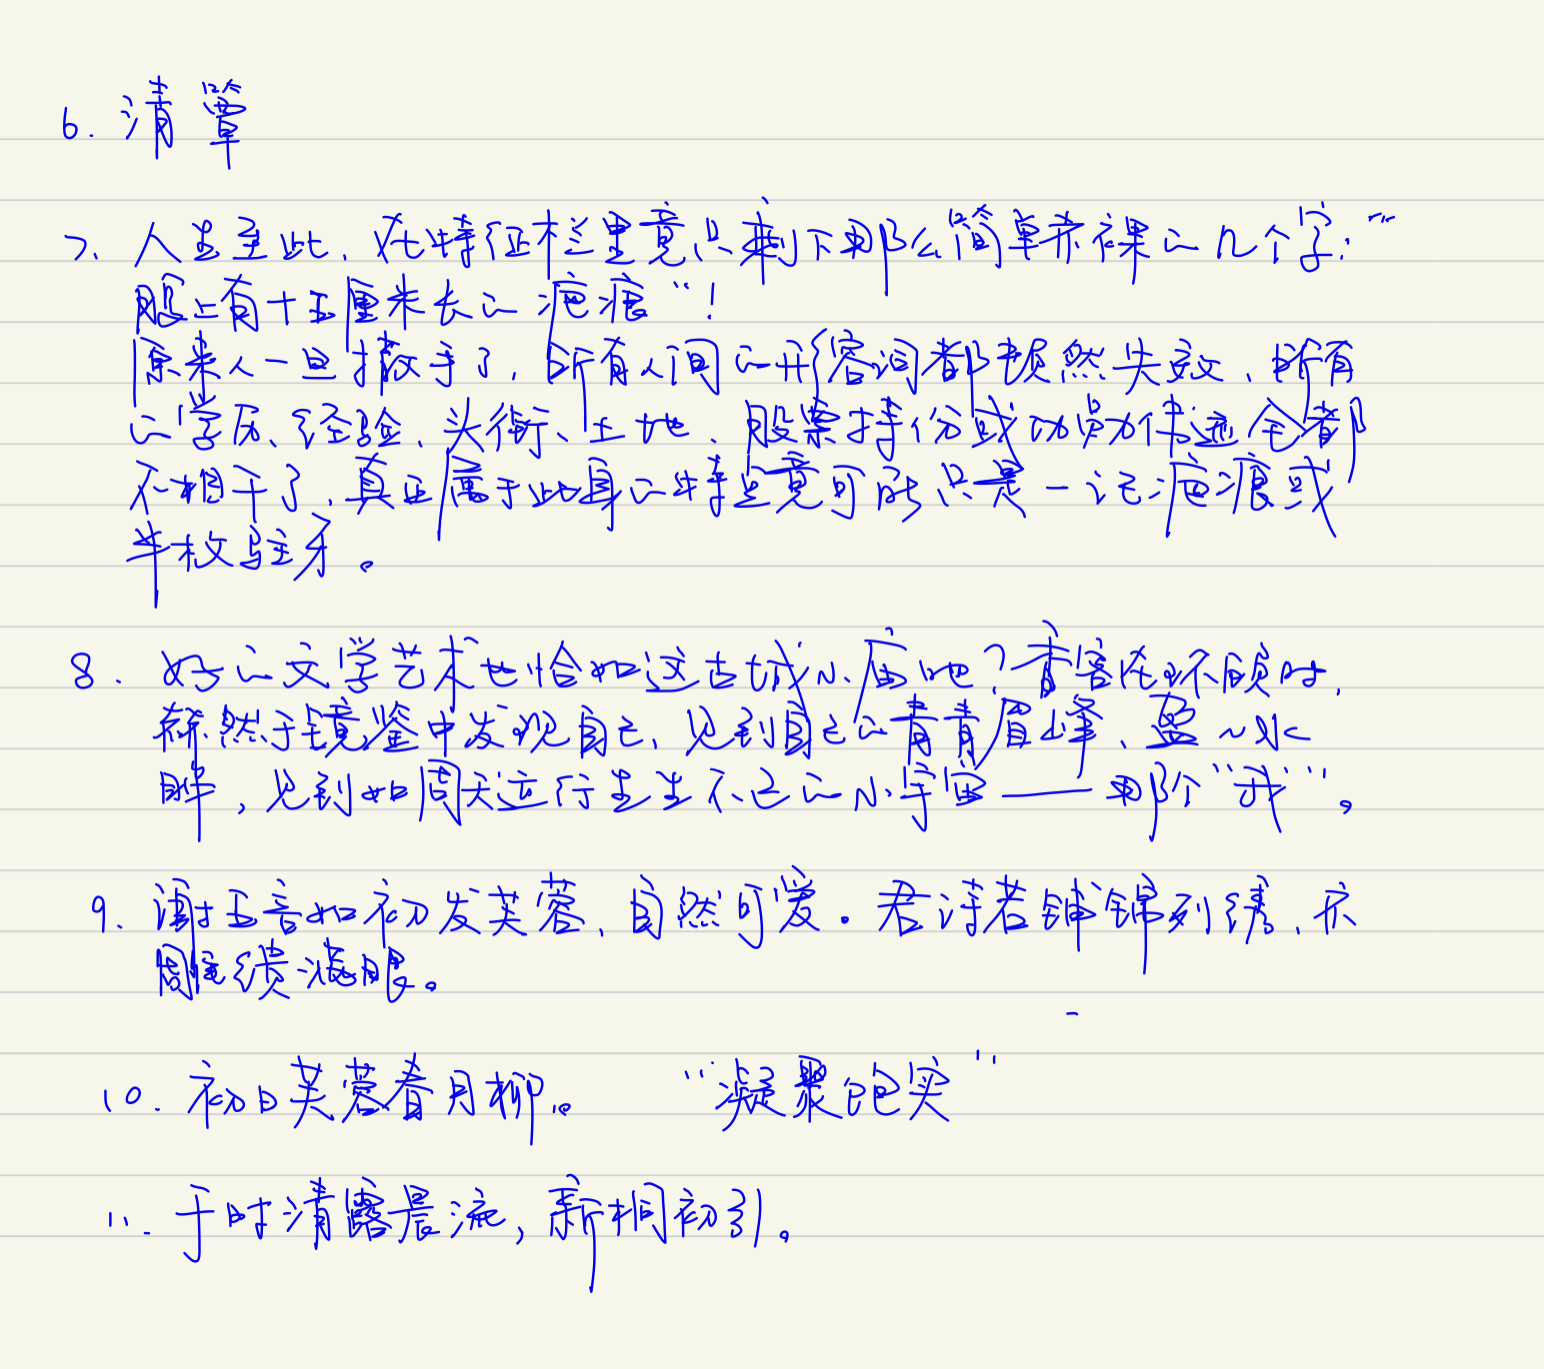 6. 清簟
7. 人生至此，在特征栏里竟只剩下那么简单赤裸的几个字：“
股上有十五厘米长的疤痕”！
原来人一旦撒手了，所有人间的形容词都顿然失效，所有
的学历、经验、头衔、土地、股票持份或功勋伟迹全都
不相干了，真正属于此身的特点竟可能只是一记疤痕或
半枚蛀牙。
8. 好的文学艺术也恰如这古城小庙吧？香客在环顾时，
赫然于镜鉴中发现自己，见到自己的青青眉峰、盈盈水
眸，见到如周天运行生生不已的小宇宙——那个“我”。
9. 谢五言如初发芙蓉，自然可爱。君诗若铺锦列绣，亦
雕缋满眼。
10. 初日芙蓉春月柳。 “凝聚饱实”
11. 于时清露晨流，新桐初引。